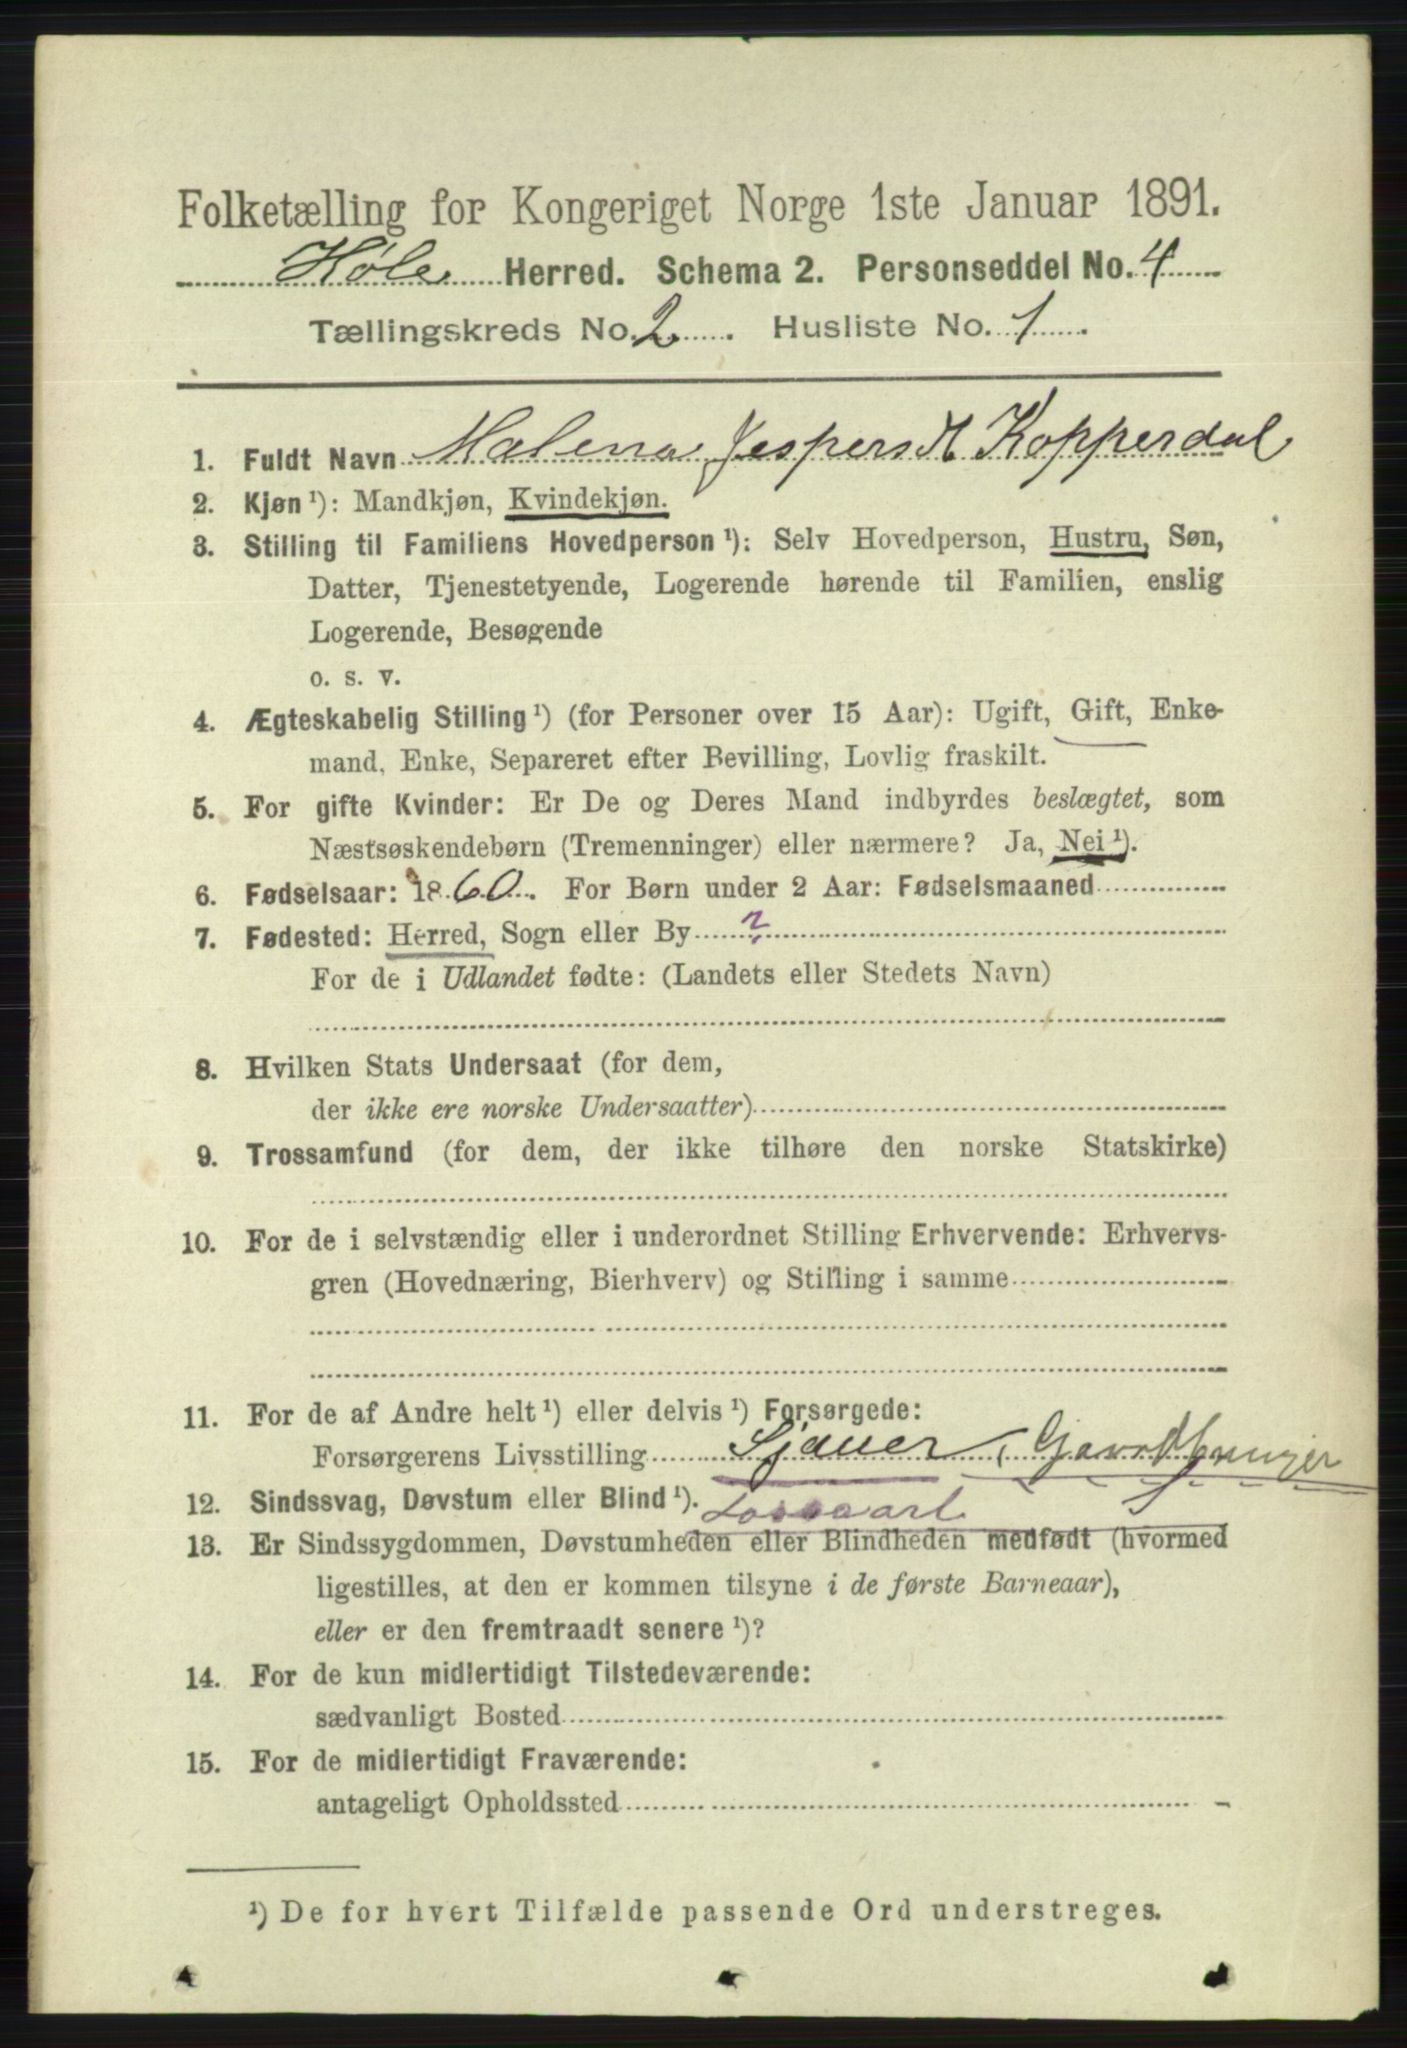 Folketælling for Kongeriget Norge 1ste Januar 1891.
Høle Herred. Schema 2. Personseddel No. 4
Tællingskreds No. 2. Husliste No. 1
1. Fuldt Navn Malena Jespersd Kopperdal
2. Kjøn ¹): Mandkjøn, Kvindekjøn.
3. Stilling til Familiens Hovedperson ¹): Selv Hovedperson, Hustru, Søn,
Datter, Tjenestetyende, Logerende hørende til Familien, enslig
Logerende, Besøgende
o. s. v.
4. Ægteskabelig Stilling ¹) (for Personer over 15 Aar): Ugift, Gift, Enke-
mand, Enke, Separeret efter Bevilling, Lovlig fraskilt.
5. For gifte Kvinder: Er De og Deres Mand indbyrdes beslægtet, som
Næstsøskendebørn (Tremenninger) eller nærmere? Ja, Nei ¹).
6. Fødselsaar: 1860. For Børn under 2 Aar: Fødselsmaaned
7. Fødested: Herred, Sogn eller By ?
For de i Udlandet fødte: (Landets eller Stedets Navn)
8. Hvilken Stats Undersaat (for dem,
der ikke ere norske Undersaatter)
9. Trossamfund (for dem, der ikke tilhøre den norske Statskirke)
10. For de i selvstændig eller i underordnet Stilling Erhvervende: Erhvervs-
gren (Hovednæring, Bierhverv) og Stilling i samme
11. For de af Andre helt ¹) eller delvis ¹) Forsørgede:
Forsørgerens Livsstilling Sjauer, Gaardbruger
12. Sindssvag, Døvstum eller Blind ¹).
13. Er Sindssygdommen, Døvstumheden eller Blindheden medfødt (hvormed
ligestilles, at den er kommen tilsyne i de første Barneaar),
eller er den fremtraadt senere ¹)?
14. For de kun midlertidigt Tilstedeværende:
sædvanligt Bosted
15. For de midlertidigt Fraværende:
antageligt Opholdssted
¹) De for hvert Tilfælde passende Ord understreges.